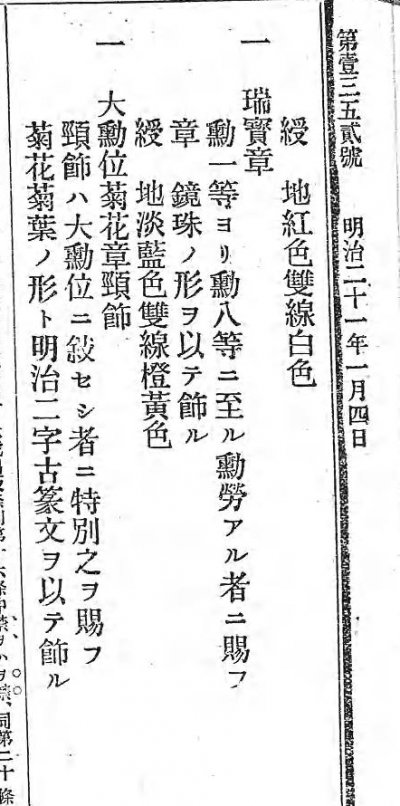 第壹三五貳號　明治二十一年一月四日
綬　地紅色雙線白色
一　瑞寳章
勳一等ヨリ勳八等ニ至ル勳勞アル者ニ賜フ
章　鏡珠ノ形ヲ以テ飾ル
綬　地淡藍色雙線橙黃色
一　大勳位菊花章頸飾
頸飾ハ大勳位ニ敍セシ者ニ特別之ヲ賜フ
菊花菊葉ノ形ト明治二字古篆文ヲ以テ飾ル
同第二十條